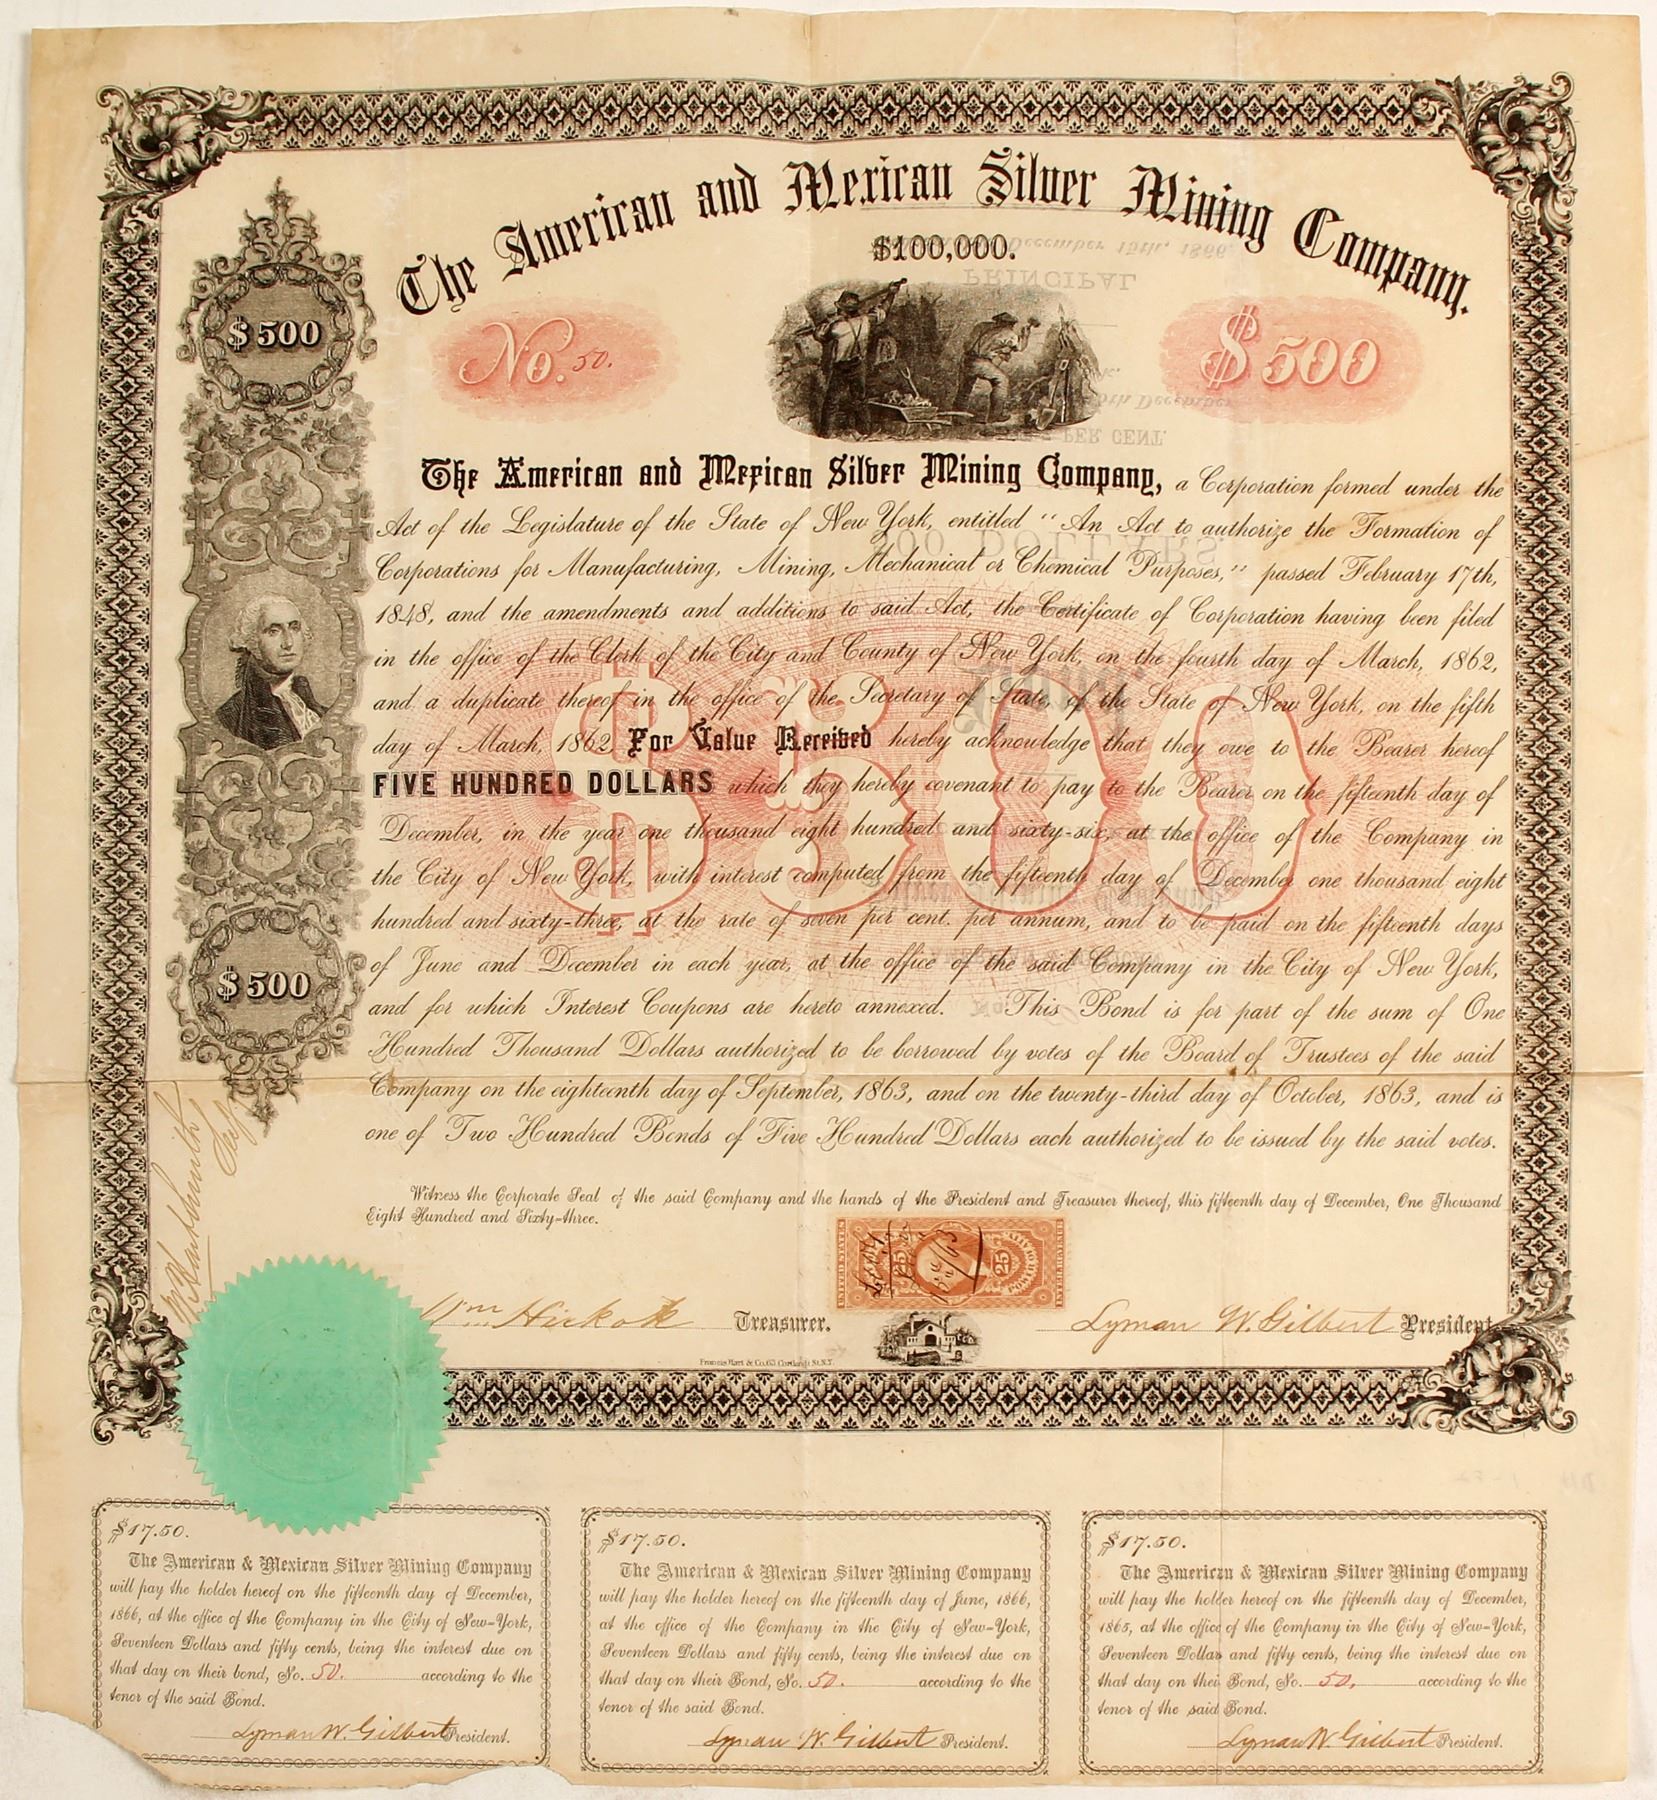 The American and Mexican Silver Mining Company.
$100,000.
$500
No. 50.
$500
The American and Mexican Silver Mining Company, a Corporation formed under the
Act of the Legislature of the State of New York, entitled "An Act to authorize the Formation of
Corporations for Manufacturing, Mining, Mechanical or Chemical Purposes," passed February 17th,
1848, and the amendments and additions to said Act, the Certificate of Corporation having been filed
in the office of the Clerk of the City and County of New York, on the fourth day of March, 1862,
and a duplicate thereof in the office of the Secretary of State, of the State of New York, on the fifth
day of March, 1862, For Value Received hereby acknowledge that they owe to the Bearer hereof
FIVE HUNDRED DOLLARS which they hereby covenant to pay to the Bearer on the fifteenth day of
December, in the year one thousand eight hundred and sixty-six, at the office of the Company in
the City of New York, with interest computed from the fifteenth day of December one thousand eight
hundred and sixty-three, at the rate of seven per cent. per annum, and to be paid on the fifteenth days
of June and December in each year, at the office of the said Company in the City of New York,
and for which Interest Coupons are hereto annexed. This Bond is for part of the sum of One
Hundred Thousand Dollars authorized to be borrowed by votes of the Board of Trustees of the said
Company on the eighteenth day of September, 1863, and on the twenty-third day of October, 1863, and is
one of Two Hundred Bonds of Five Hundred Dollars each authorized to be issued by the said votes.
$500
$500
Witness the Corporate Seal of the said Company and the hands of the President and Treasurer thereof, this fifteenth day of December, One Thousand
Eight Hundred and Sixty-three.
UNITED STATES
25
25
INTER. REVENUE
Wm Hickok Treasurer.
Lyman W. Gilbert President
Francis Hart & Co. 63 Cortlandt St. N.Y.
$17.50.
The American & Mexican Silver Mining Company
will pay the holder hereof on the fifteenth day of December,
1866, at the office of the Company in the City of New-York,
Seventeen Dollars and fifty cents, being the interest due on
that day on their bond, No. 50. according to the
tenor of the said Bond.
Lyman W. Gilbert President.
$17.50.
The American & Mexican Silver Mining Company
will pay the holder hereof on the fifteenth day of June, 1866,
at the office of the Company in the City of New-York,
Seventeen Dollars and fifty cents, being the interest due on
that day on their Bond, No. 50. according to the
tenor of the said Bond.
Lyman W. Gilbert President.
$17.50.
The American & Mexican Silver Mining Company
will pay the holder hereof on the fifteenth day of December,
1865, at the office of the Company in the City of New-York,
Seventeen Dollars and fifty cents, being the interest due on
that day on their Bond, No. 50. according to the
tenor of the said Bond.
Lyman W. Gilbert President.